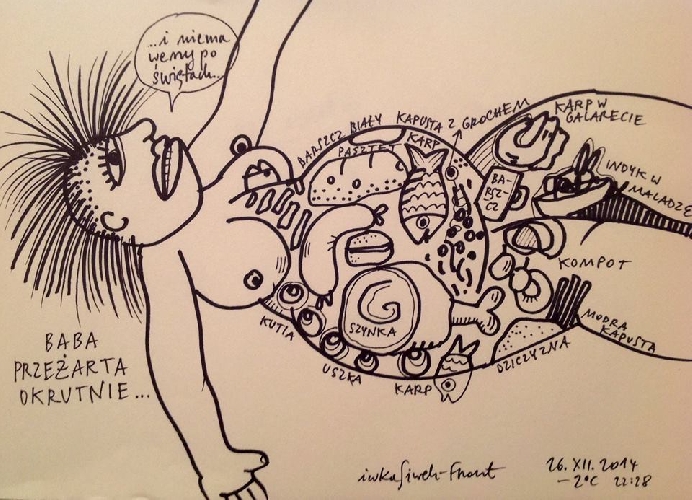 ...i niema
wemy po
świętach...
BARSZCZ BIAŁY
KAPUSTA Z GROCHEM
KARP W
GALARECIE
PASZTET
KARP
BA-
RSZ-
CZ
INDYK W
MALADZE
KOMPOT
KUTIA
SZYNKA
MODRA
KAPUSTA
USZKA
KARP
DZICZYZNA
BABA
PRZEŻARTA
OKRUTNIE...
26.XII.2014
-2°C 22:28